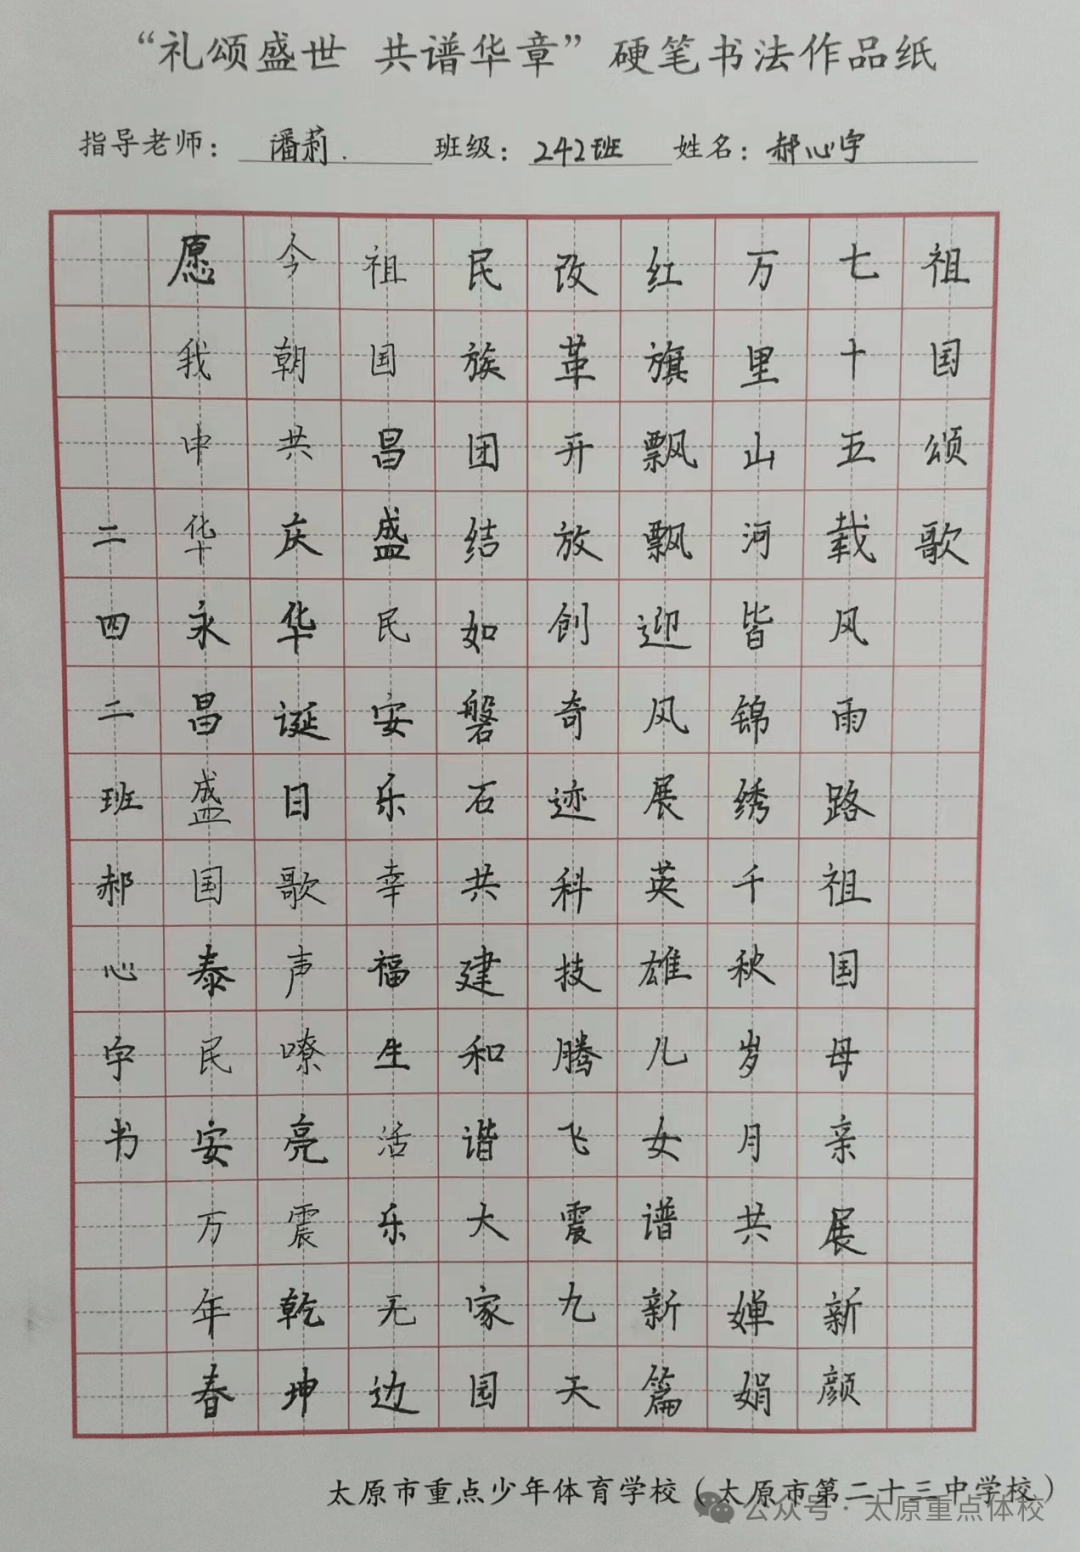 “礼颂盛世 共谱华章”硬笔书法作品纸
指导老师：潘莉. 班级：242班 姓名：郝心宇
祖国颂歌
七十五载风雨路祖国母亲展新颜
万里山河皆锦绣千秋岁月共婵娟
红旗飘飘迎风展英雄儿女谱新篇
改革开放创奇迹科技腾飞震九天
民族团结如磐石共建和谐大家园
祖国昌盛民安乐幸福生活乐无边
今朝共庆华诞日歌声嘹亮震乾坤
愿我中华永昌盛国泰民安万年春
二四二班郝心宇书
太原市重点少年体育学校（太原市第二十三中学校）
公众号·太原重点体校